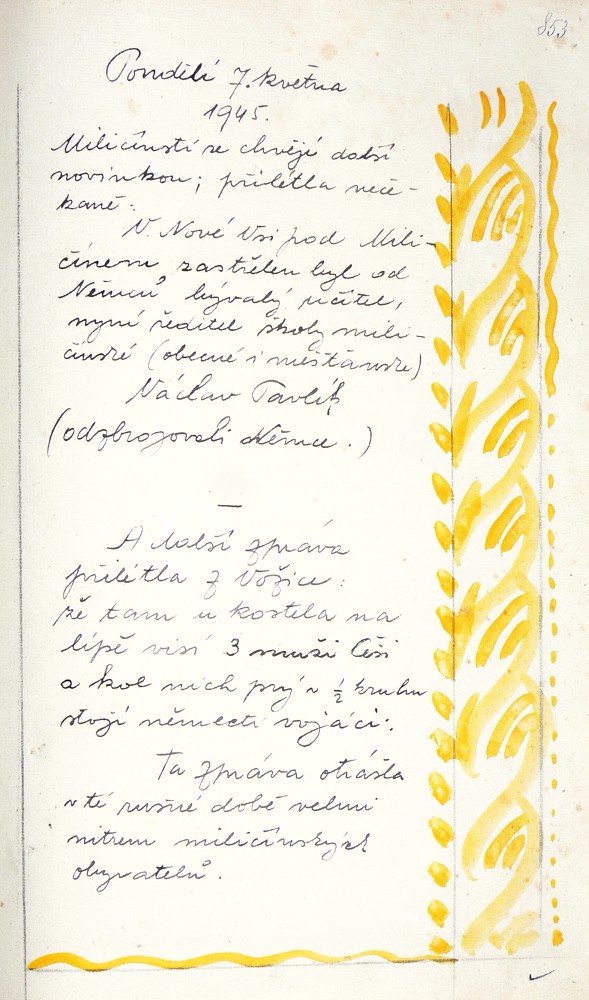 853
Pondělí 7. května
1945.
Miličínští se chvějí další
novinkou; přilétla neče-
kaně:
V Nové Vsi pod Mili-
čínem zastřelen byl od
Němců bývalý učitel,
nyní ředitel školy mili-
čínské (obecné i měšťanské)
Václav Pavlík
(odzbrojovali Němce.)
—
A další zpráva
přilétla z Vožice:
že tam u kostela na
lípě visí 3 muži Češi
a kol nich prý v ½ kruhu
stojí němečtí vojáci.
Ta zpráva otřásla
v té rušné době velmi
nitrem miličínských
obyvatelů.